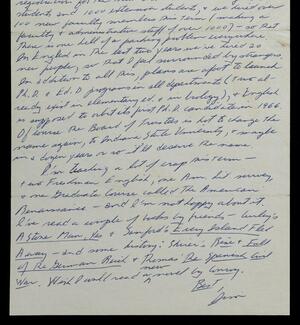 students and 1000 extension students, & we hired over
100 new faculty members this term (making a
faculty & administrative staff of over 1000) — so that
There is one hell of a parking problem everywhere.
In English in the last two years we've hired 20
new people, so that I feel surrounded by strangers.
In addition to all this, plans are afoot to launch
Ph.D. & Ed. D programs in all departments (two al-
ready exist in elementary ed. & in biology), & English
is supposed to orbit its first Ph.D. candidate in 1966.
Of course the Board of Trustees is hot to change the
name again, to Indiana State University, & maybe
in a dozen years or so it'll deserve the name.
I'm teaching a lot of crap this term —
two Freshman English, one Am. lit survey
& one Graduate Course called The American
Renaissance — and I'm not happy about it.
I've read a couple of books by friends —
A Stone Man, Yes & Sanford's Every Island Fled
Away — and some history: Shirer's Rise & Fall
of the German Reich & Thomas' The Spanish Civil
War. Wish I could read a new novel by
Best